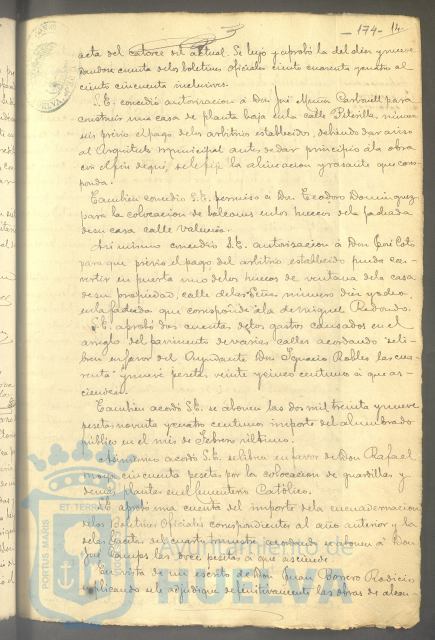 - 174 - 14
acta del catorce del actual. Se leyó y aprobó la del diez y nueve
Dandose cuenta de los boletines oficiales ciento cuarenta y cuatro al
ciento cincuenta inclusives.
S.E. concedió autorizacion à Don José Muñoz Carbonell para
construir una casa de planta baja en la calle
previo el pago de los arbitrios establecidos, debiendo dar aviso
al Arquitecto municipal antes de dar principio à la obra
con el fin de que se le fije la alineacion y rasante que corres
ponda.
Tambien concedio S.E. permiso à Dn. Teodoro Dominguez
para la colocacion de balcones en los huecos de la fachada
de su casa calle
Asi mismo concedio S.E. autorizacion à Don José Coto
para que previo el pago del arbitrio establecido pueda con
vertir en puerta uno de los huecos de ventana de la casa
de su propiedad, calle de las Peñas número diez y ocho
en la fachada que corresponde à la de Miguel Redondo.
S.E. aprobó dos cuentas de los gastos causados en el
arreglo del pavimento de varias calles acordando se li
bren en favor del Ayudante Don Ignacio Robles las cua
renta y nueve pesetas veinte y cinco centimos à que as-
cienden.
Tambien acordó S.E. se abonen las dos mil treinta y nueve
pesetas noventa y cuatro centimos importe del alumbrado
público en el mes de Febrero ultimo.
Asimismo acordó S.E. se libren en favor de Don Rafael
cincuenta pesetas por la colocacion de
plantas en el Cementerio Católico.
S.E. aprobó una cuenta del importe de la encuadernacion
de los Boletines Oficiales correspondientes al año anterior y la
de las Gacetas del cuarto trimestre acordando se abonen à Don
José Campos las doce pesetas à que asciende.
En vista de un escrito de Don Juan Borrero Rodicio
suplicando se le adjudique definitivamente las obras de alcan-
PORTUS MARIS
ET TERRAE
Ayuntamiento de
HUELVA